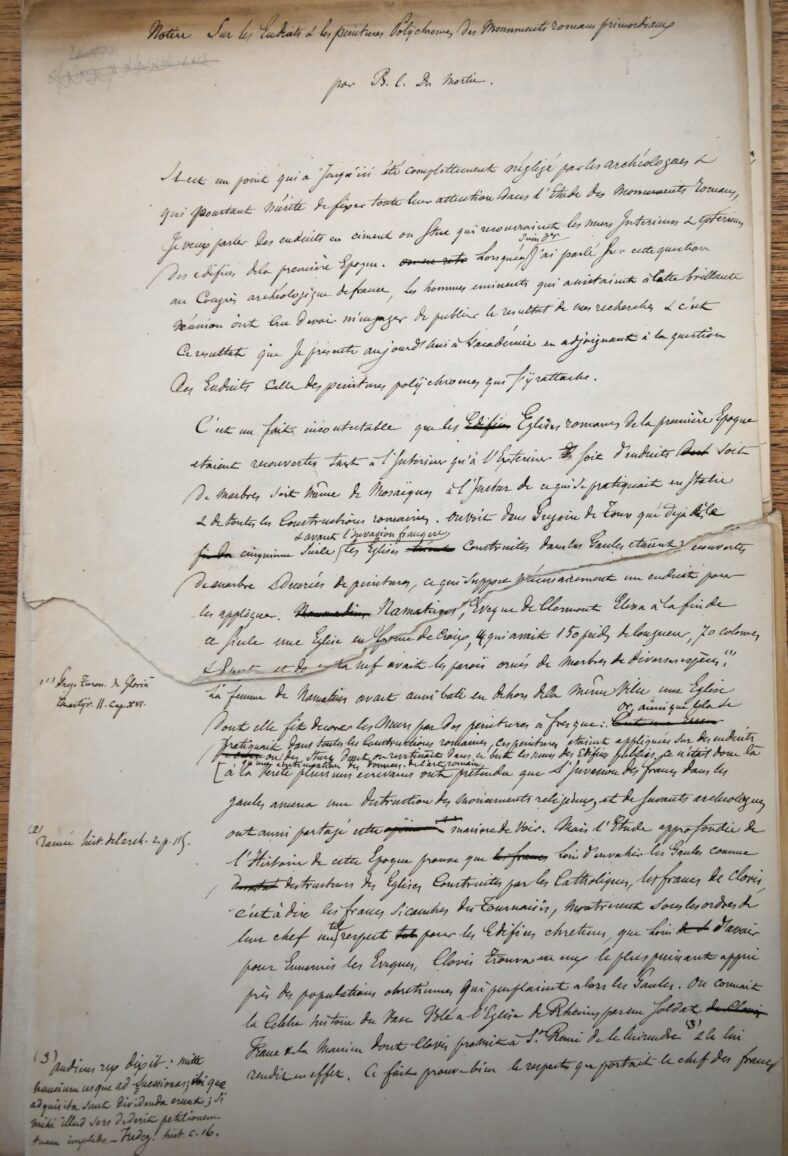 Notice Sur les Enduits & les peintures Polychromes des Monuments romans primordiaux
par B. C. Du Mortier.
Il est un point qui a jusqu'ici été complettement négligé par les archéologues &
qui pourtant mérite de fixer toute leur attention dans l'Etude des Monuments romans,
Je veux parler des enduits en ciment ou stuc qui recouvraient les murs Interieurs & exterieurs
des edifices de la première Epoque. Lorsque j'ai parlé sur cette question
au Congrès archéologique de france, les hommes eminents qui assistaient à cette brillante
réunion ont cru devoir m'engager de publier le resultat de mes recherches & c'est
ce resultat que je presente aujourd'hui à l'académie en adjoignant à la question
des Enduits celle des peintures polychromes qui s'y rattache.
C'est un fait incontestable que les Edifices Eglises romanes de la première Epoque
etaient recouvertes tant à l'Interieur qu'à l'Exterieur soit d'enduits soit
de marbres soit même de Mosaïques à l'Instar de ce qui se pratiquait en Italie
& de toutes les Constructions romaines. On voit dans Gregoire de Tours que déja dès le
& avant l'invasion franque
cinquieme siècle les Eglises Construites dans les Gaules etaient recouvertes
de marbre & ornées de peintures, ce qui suppose nécessairement un enduit pour
les appliquer. Namatius, Eveque de Clermont Eleva à la fin de
ce siecle une Eglise en forme de Croix, qui avait 150 pieds de longueur, 70 colonnes
la nef avait les parois ornés de marbres de diverses espèces. (1)
(1) Greg. Turon. de Gloriâ
Martyr. II. Cap. XVI.
La femme de Namatius avait aussi bati en dehors de la même Ville une Eglise
dont elle fit decorer les Murs par des peintures à fresque: or, ainsi que cela se
pratiquait dans toutes les Constructions romaines, ces peintures etaient appliquées sur des enduits
ou des stucs dont on revêtait dans ce but les murs des Edifices publics, ce n'etait donc là
qu'une continuation des données de l'art romain.
à la verité plusieurs ecrivains ont prétendu que l'Invasion des francs dans les
gaules amena une destruction des monuments religieux, et de savants archeologues
ont aussi partagé cette opinion (2) maniere de Voir. Mais l'Etude approfondie de
(2)
ramée hist. de l'arch. 2. p. 115.
l'Histoire de cette Epoque prouve que les francs loin d'envahir les Gaules comme
destructeurs des Eglises Construites par les Catholiques, les francs de Clovis,
c'est à dire les francs Sicambres du Tournaisis, montrerent sous les ordres de
leur chef un tel respect pour les Edifices chretiens, que loin d'avoir
pour Ennemis les Evêques, Clovis trouva en eux le plus puissant appui
près des populations chretiennes qui peuplaient alors les Gaules. On connait
la Celebre histoire du Vase Volé à l'Eglise de Rheims par un Soldat de Clovis
franc & la Maniere dont Clovis promit à St. Remi de le lui rendre (3) & le lui
rendit en effet. Ce fait prouve bien le respect que portait le chef des francs
(3) audiens rex dixit: mitte
nuncium usque ad Suessionas; ibi quæ
adquisita sunt dividenda erunt; si
mihi illud sors dederit petitionem
tuam implebo. — Fredeg. hist. c. 16.